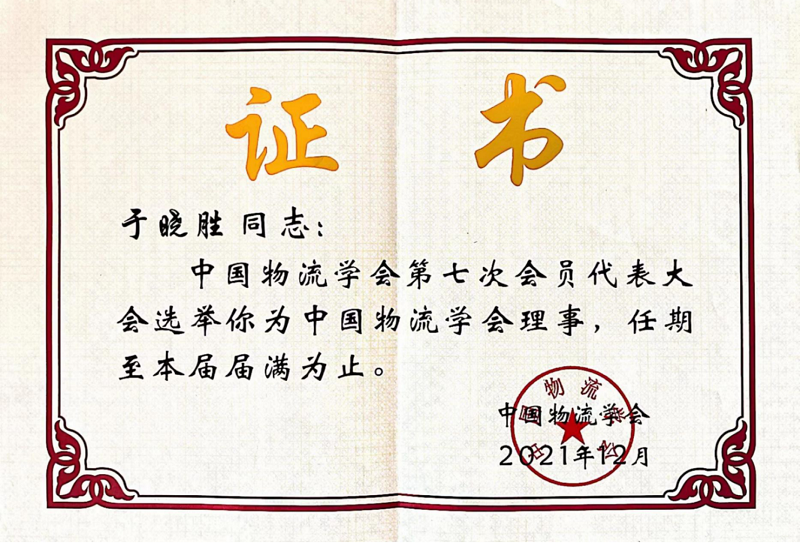 证书
于晓胜 同志：
中国物流学会第七次会员代表大
会选举你为中国物流学会理事，任期
至本届届满为止。
中国物流学会
2021年12月
中国物流学会